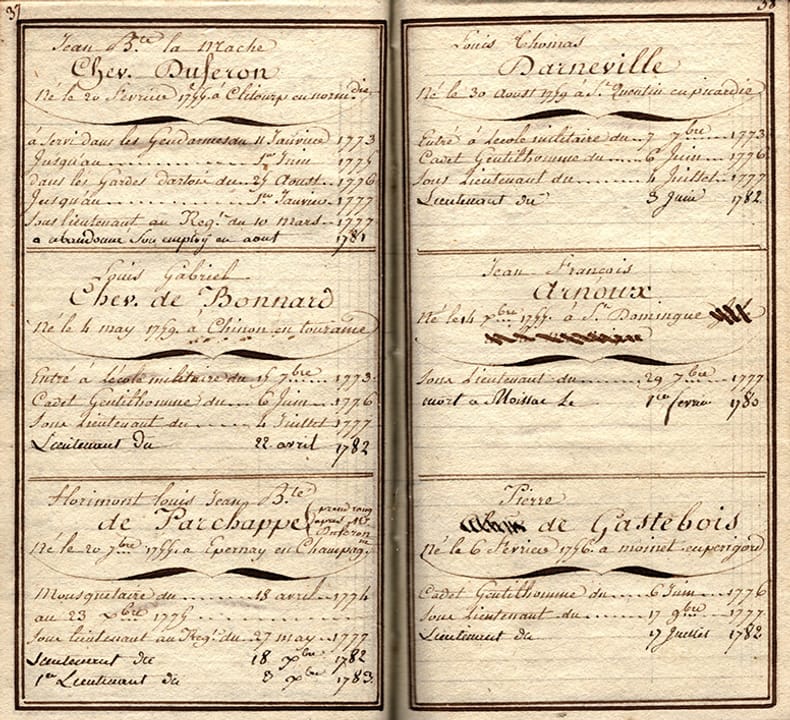 37
Jean B.te la Mache
Chev. Duferon
Né le 20 Fevrier 1755. à en norm.die
à servi dans les Gendarmes du 11 Janvier 1773
Jusqu'au 1er Juin 1775
dans les Gardes dartois du 25 Aoust 1776
Jusqu'au 1er Janvier 1777
Sous lieutenant au Reg.t du 10 Mars 1777
a abandonné son employ en aout 1781
Louis Gabriel
Chev. de Bonnard
Né le 4 may 1759. à Chinon en touraine
Entré à Lécole militaire du 15 7bre 1773
Cadet Gentilhomme du 6 Juin 1776
Sous Lieutenant du 4 Juillet 1777
Lieutenant du 22 avril 1782
Florimont Louis Jean B.te
de Parchappe
prend rang après Mr Duferon
Né le 20 7bre 1755. à Epernay en Champag.
Mousquetaire du 18 avril 1774
au 23 xbre 1775
Sous lieutenant au Reg.t du 27 may 1777
Lieutenant du 18 xbre 1782
1er Lieutenant du 3 xbre 1783
38
Louis Thomas
Darneville
Né le 30 Aoust 1759 à St Quentin en picardie
Entré à Lecole militaire du 7 7bre 1773
Cadet Gentilhomme du 6 Juin 1776
Sous Lieutenant du 4 Juillet 1777
Lieutenant du 3 Juin 1782
Jean François
Arnoux
Né le 4 xbre 1755. à St Domingue
Sous Lieutenant du 29 7bre 1777
mort a Moissac Le 1er fevrier 1780
Pierre
de Gastebois
Né le 6 Fevrier 1756. à moinet en perigord
Cadet Gentilhomme du 6 Juin 1776
Sous Lieutenant du 17 9bre 1777
Lieutenant du 17 Juillet 1782